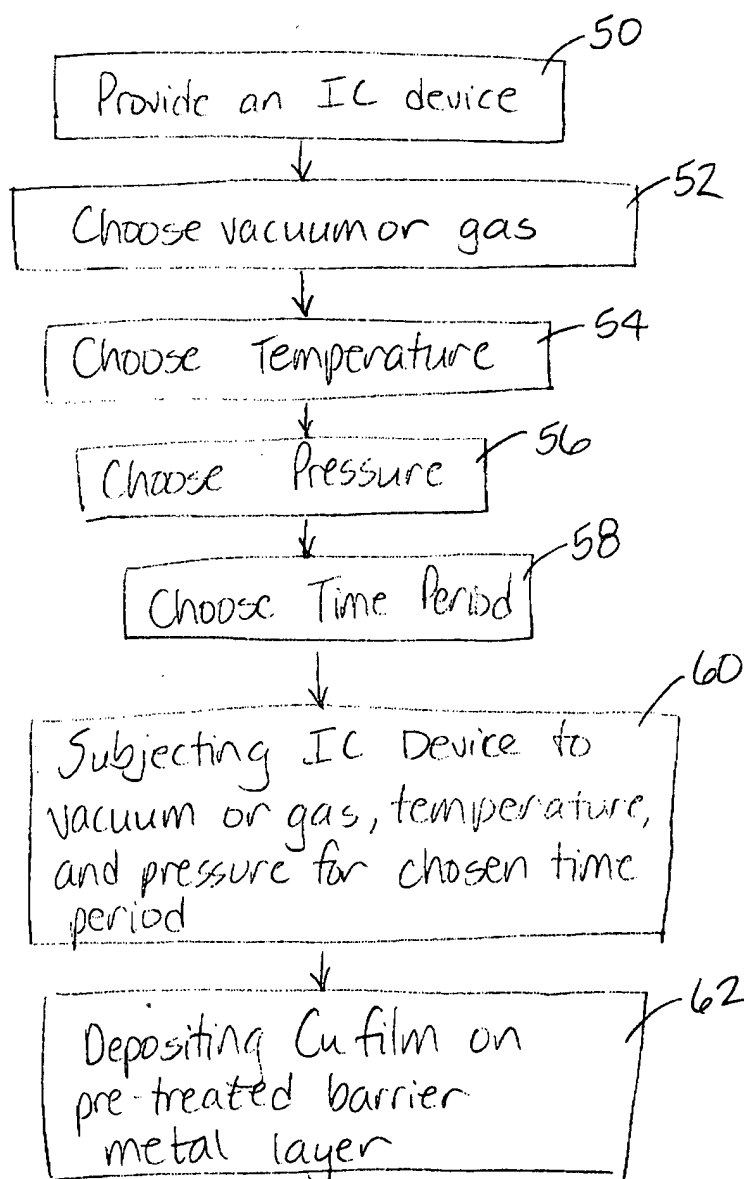 50
Provide an IC device
52
Choose vacuum or gas
54
Choose Temperature
56
Choose Pressure
58
Choose Time Period
60
Subjecting IC Device to
vacuum or gas, temperature,
and pressure for chosen time
period
62
Depositing Cu film on
pre-treated barrier
metal layer